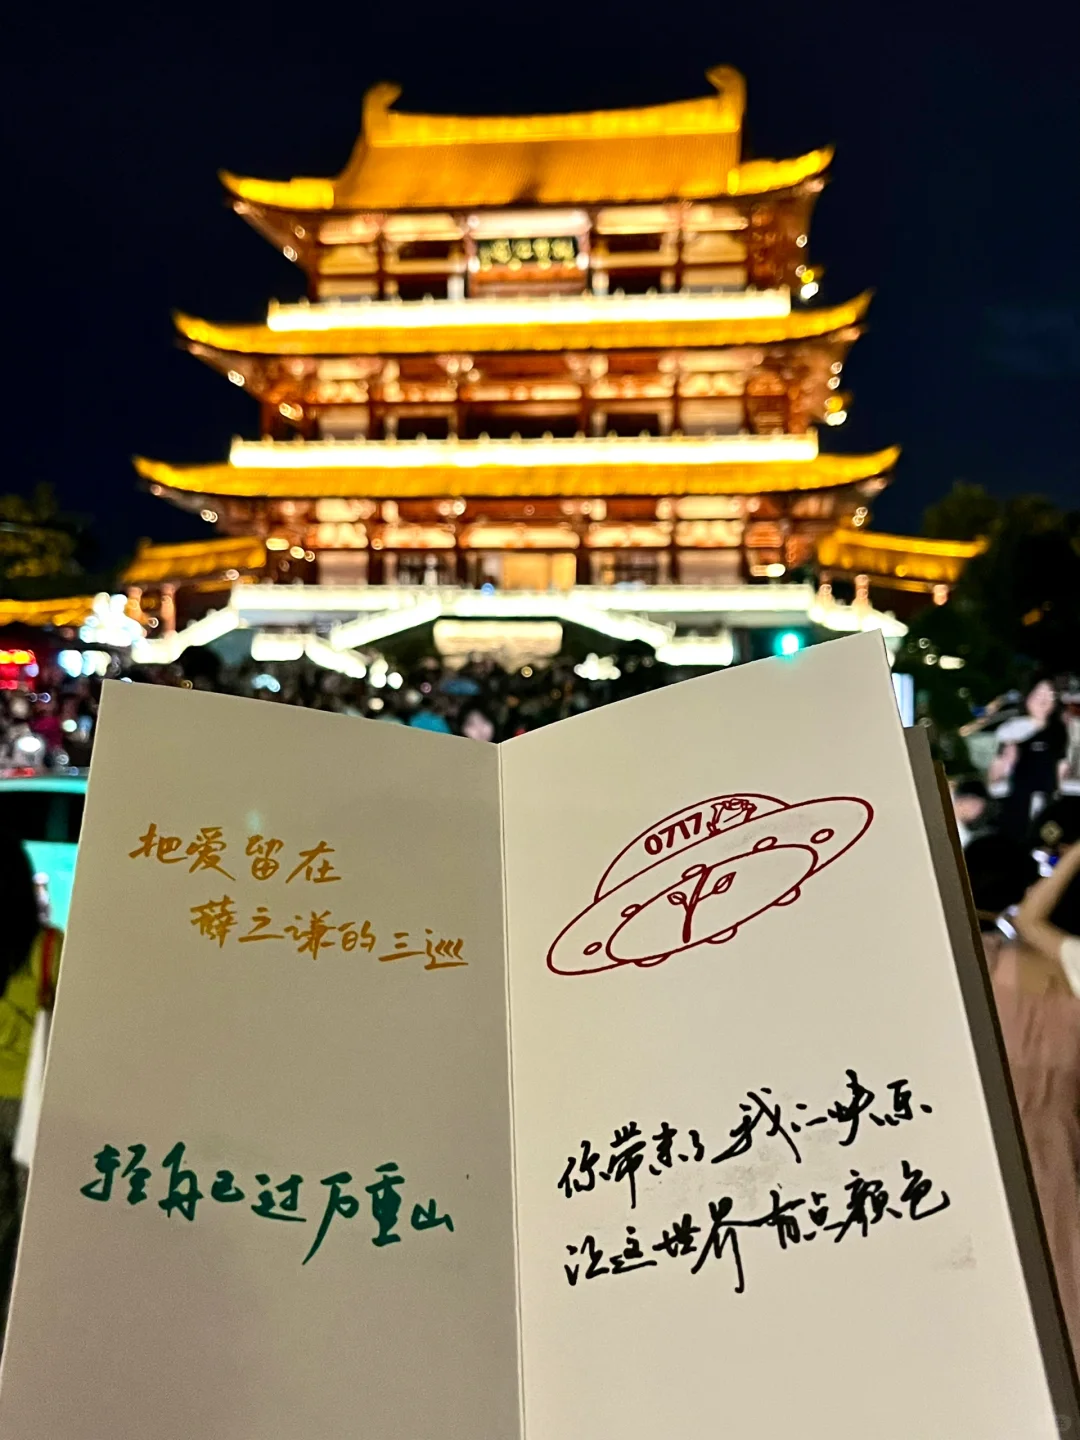 把爱留在
薛之谦的三巡
轻舟已过万重山
0717
你带来了我的快乐
让这世界有点颜色